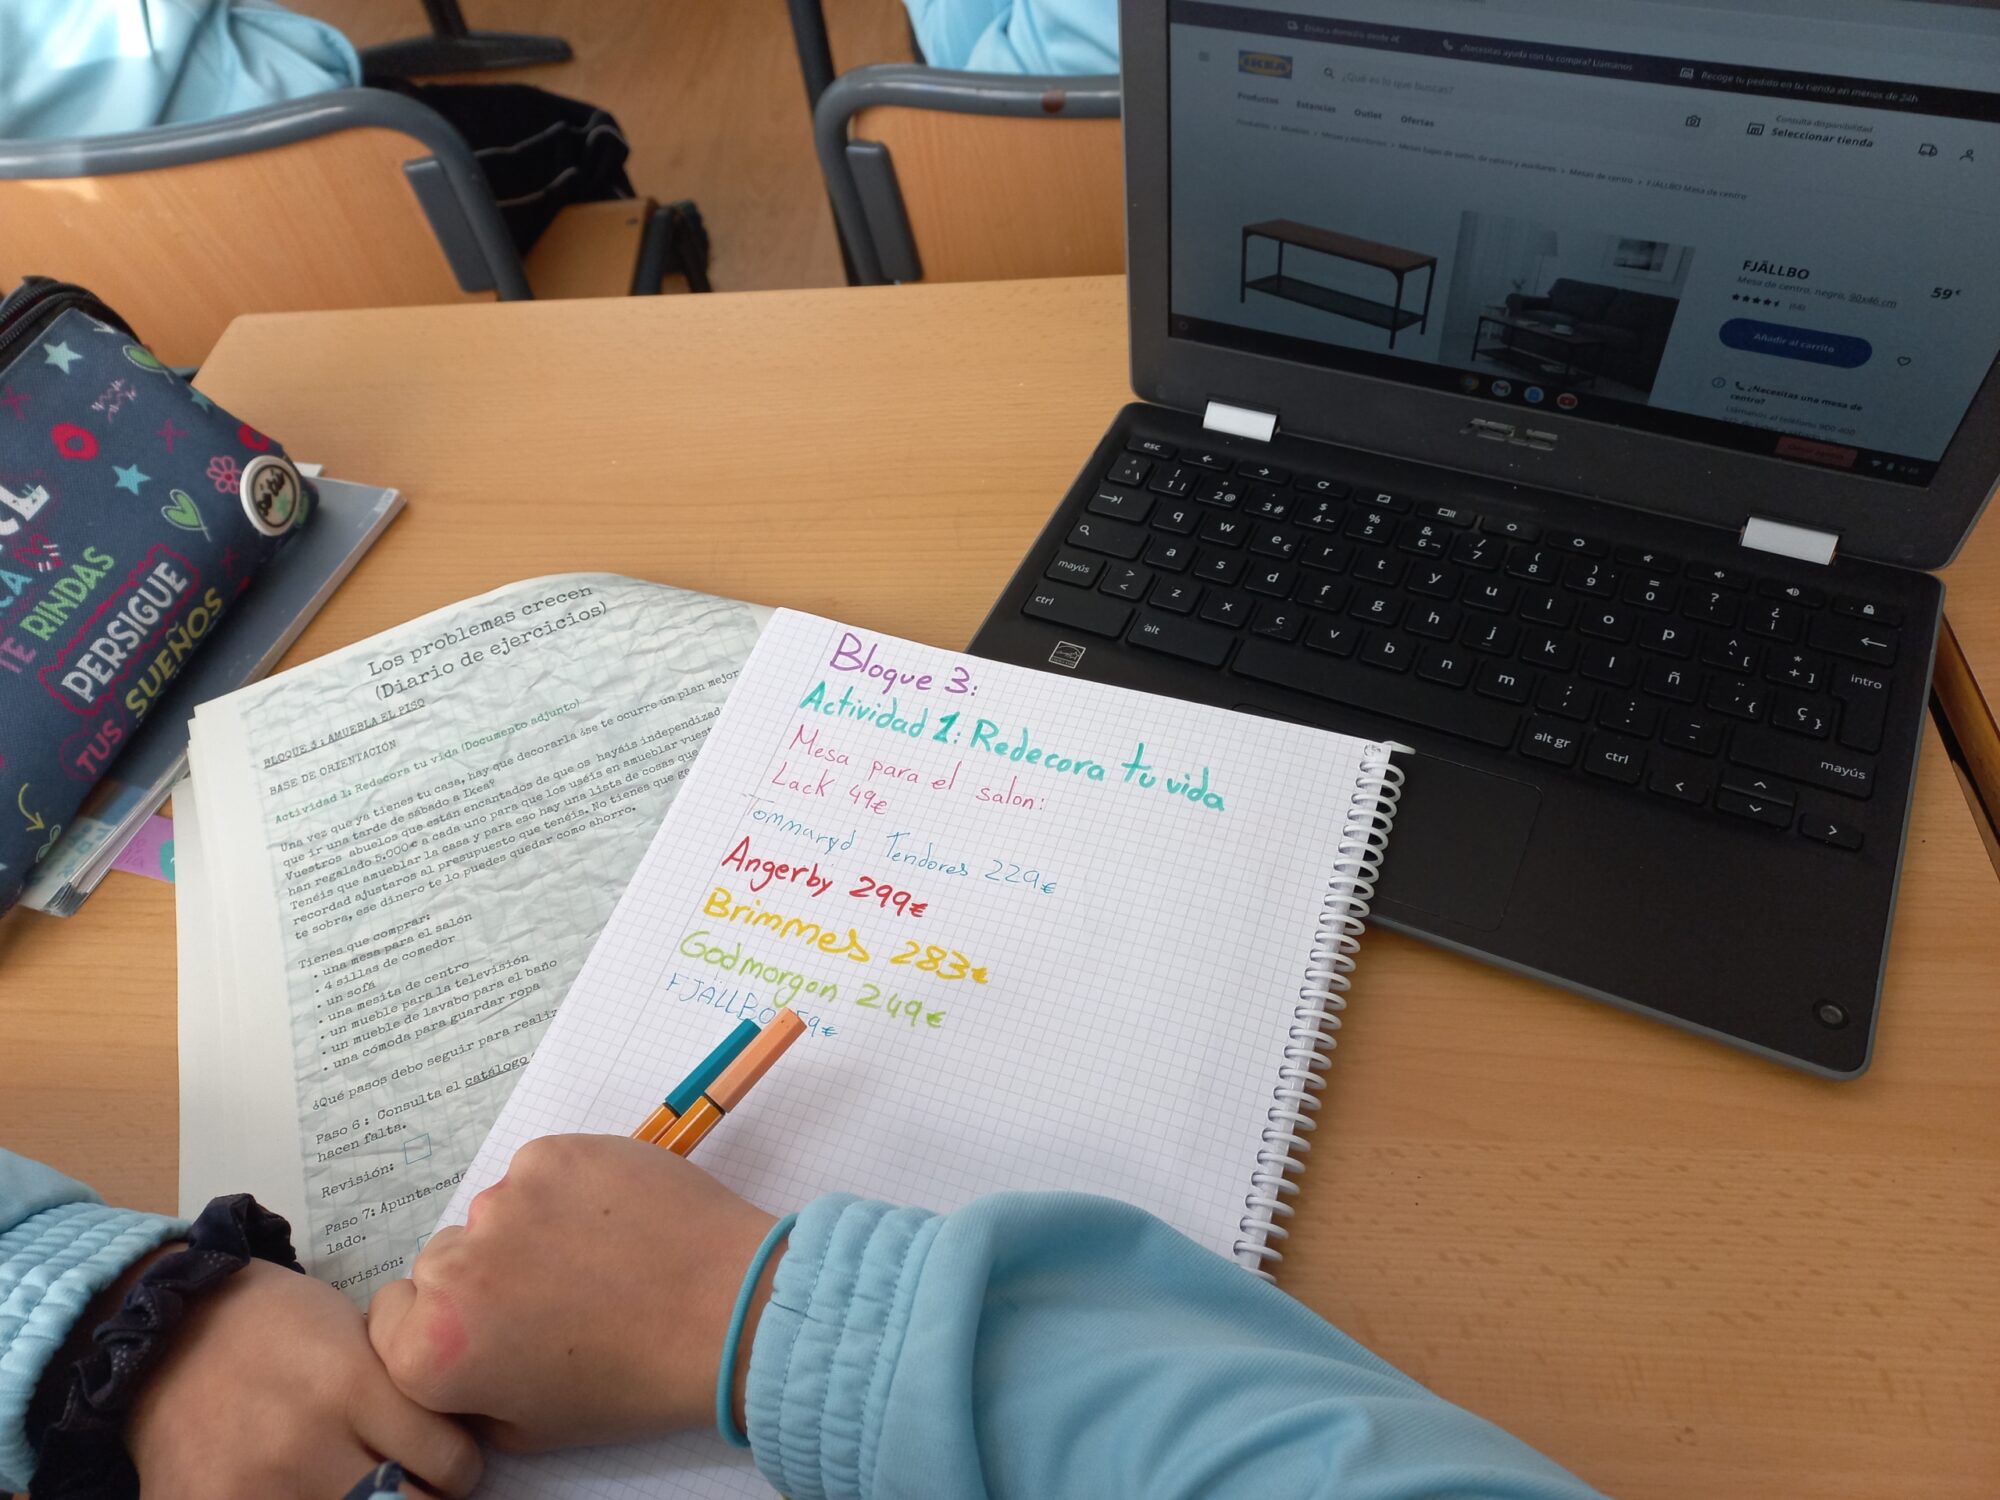 Envío a domicilio desde 4€
¿Necesitas ayuda con tu compra? Llámanos
Recoge tu pedido en tu tienda en menos de 24h
IKEA
¿Qué es lo que buscas?
Productos Estancias Outlet Ofertas
Consulta disponibilidad
Seleccionar tienda
Productos › Muebles › Mesas y escritorios › Mesas bajas de salón, de centro y auxiliares › Mesas de centro › FJÄLLBO Mesa de centro
FJÄLLBO
59€
Mesa de centro, negro, 90x46 cm
Añadir al carrito
¿Necesitas una mesa de
centro?
Llámanos al teléfono 900 400
ASUS
esc
1 ! 2 " @ 3 · # 4 $ ~ 5 % 6 & ¬ 7 / 8 ( 9 ) 0 = ? ' ¿ ¡
q w e € r t y u i o p ^ ` [ * + ] intro
mayús a s d f g h j k l ñ ¨ ´ { ç }
ctrl > < z x c v b n m ; , : . _ - mayús
alt alt gr ctrl < ^ v >
TE RINDAS
PERSIGUE
TUS SUEÑOS
Los problemas crecen
(Diario de ejercicios)
BLOQUE 3: AMUEBLA EL PISO
BASE DE ORIENTACIÓN
Actividad 1: Redecora tu vida (Documento adjunto)
Una vez que ya tienes tu casa, hay que decorarla ¿se te ocurre un plan mejor
que ir una tarde de sábado a Ikea?
Vuestros abuelos que están encantados de que os hayáis independizad
han regalado 5.000€ a cada uno para que los uséis en amueblar vuest
Tenéis que amueblar la casa y para eso hay una lista de cosas que
recordad ajustaros al presupuesto que tenéis. No tienes que ge
te sobra, ese dinero te lo puedes quedar como ahorro.
Tienes que comprar:
• una mesa para el salón
• 4 sillas de comedor
• un sofá
• una mesita de centro
• un mueble para la televisión
• un mueble de lavabo para el baño
• una cómoda para guardar ropa
¿Qué pasos debo seguir para realiz
Paso 6: Consulta el catálogo
hacen falta.
Revisión:
Paso 7: Apunta cad
lado.
Revisión:
Bloque 3:
Actividad 1: Redecora tu vida
Mesa para el salon:
Lack 49€
Tommaryd Tendores 229€
Angerby 299€
Brimmes 283€
Godmorgon 249€
FJÄLLBO 59€